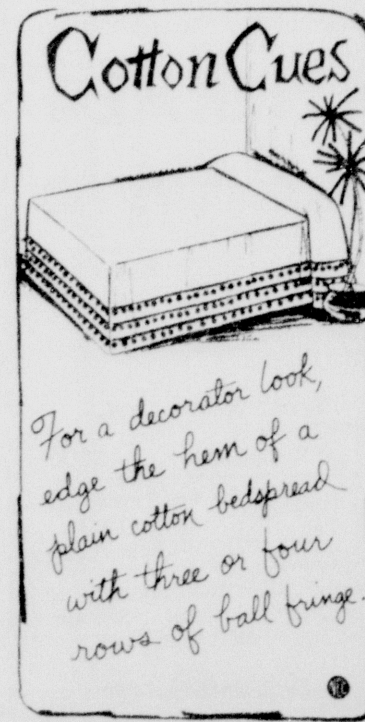 Cotton Cues
For a decorator look,
edge the hem of a
plain cotton bedspread
with three or four
rows of ball fringe.